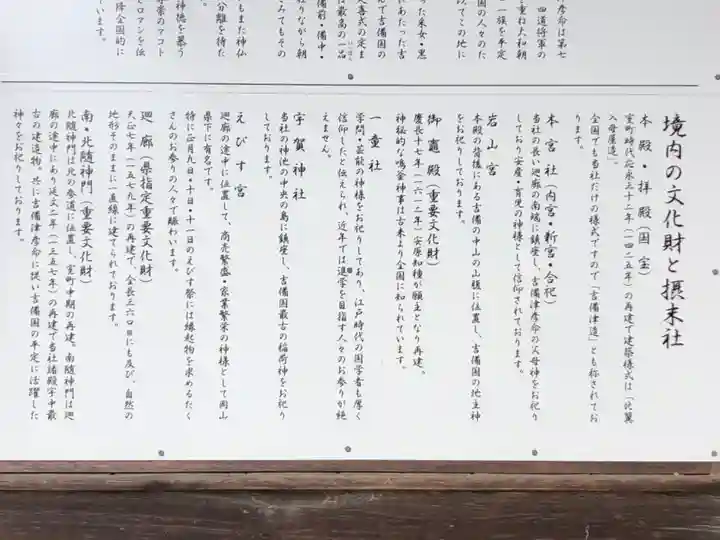 彦命は第七
四道将軍の
と重ね大和朝
一族を平定
国の人々のた
以てこの地に
った采女・黒
にあたった吉
んで吉備国の
延喜式の定ま
は最高の一品
備前・備中・
りながら朝
みてもその
もまた神仏
分離を待た
神徳を慕う
崇のマコト
とロマンを伝
降全国的に
います。
境内の文化財と摂末社
本殿・拝殿(国宝)
室町時代応永三十二年(一四二五年)の再建で建築様式は「比翼
入母屋造」。
全国でも当社だけの様式ですので「吉備津造」とも称されてお
ります。
本宮社(内宮・新宮・合祀)
当社の長い廻廊の南端に鎮座し、吉備津彦命の父母神をお祀り
しており安産・育児の神様として信仰されております。
岩山宮
本殿の背後にある吉備の中山の山腹に位置し、吉備国の地主神
をお祀りしております。
御竈殿(重要文化財)
慶長十七年(一六一二年)安原知種が願主となり再建。
神秘的な鳴釜神事は古来より全国に知られています。
一童社
学問・芸能の神様をお祀りしてあり、江戸時代の国学者も厚く
信仰したと伝えられ、近年では進学を目指す人々のお参りが絶
えません。
宇賀神社
当社の神池の中央の島に鎮座し、吉備国最古の稲荷神をお祀り
しております。
えびす宮
廻廊の途中に位置して、商売繁盛・家業繁栄の神様として岡山
県下に有名です。
特に正月九日・十日・十一日のえびす祭には縁起物を求めるたく
さんのお参りの人々で賑わいます。
廻廊(県指定重要文化財)
天正七年(一五七九年)の再建で、全長三六〇㍍にも及び、自然の
地形そのままに一直線に建てられております。
南・北随神門(重要文化財)
北随神門は北の参道に位置し、室町中期の再建。南随神門は廻
廊の途中にあり延文二年(一三五七年)の再建で当社諸殿宇中最
古の建造物。共に吉備津彦命に従い吉備国の平定に活躍した
神々をお祀りしております。